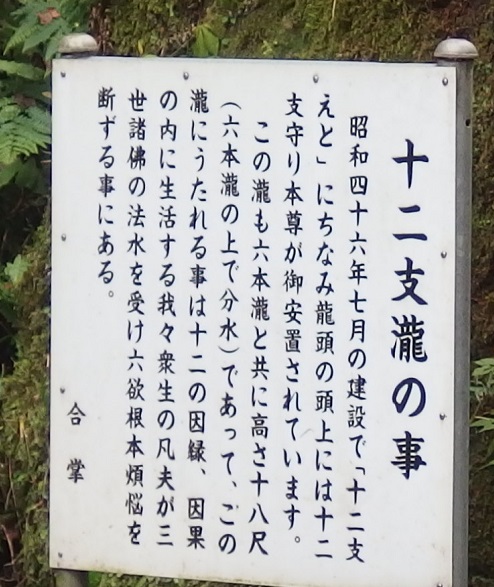 十二支瀧の事
昭和四十六年七月の建設で「十二支
えと」にちなみ龍頭の頭上には十二
支守り本尊が御安置されています。
この瀧も六本瀧と共に高さ十八尺
(六本瀧の上で分水)であって、この
瀧にうたれる事は十二の因縁、因果
の内に生活する我々衆生の凡夫が三
世諸佛の法水を受け六欲根本煩悩を
断ずる事にある。
合掌